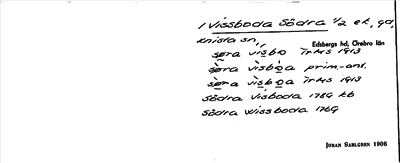 1 Vissboda Södra 1/2 ek, gd,
Knista sn,
Edsbergs hd, Örebro län
sø̀ra vìsbo Trks 1913
sø̀ra vìsbo̱a prim.-ant.
sø̀ra vìsbo̱a Trks 1913
Södra Visboda 1759 kb
Södra Wissboda 1769
JÖRAN SAHLGREN 1906